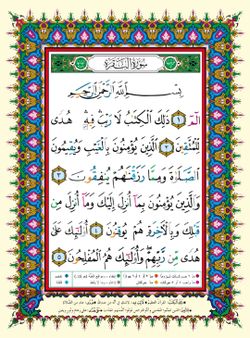 سُورَةُ الْبَقَرَةِ
بِسْمِ اللَّهِ الرَّحْمَٰنِ الرَّحِيمِ
الٓمٓ ١ ذَٰلِكَ الْكِتَٰبُ لَا رَيْبَ فِيهِ هُدًى
لِّلْمُتَّقِينَ ٢ الَّذِينَ يُؤْمِنُونَ بِالْغَيْبِ وَيُقِيمُونَ
الصَّلَوٰةَ وَمِمَّا رَزَقْنَٰهُمْ يُنفِقُونَ ٣
وَالَّذِينَ يُؤْمِنُونَ بِمَآ أُنزِلَ إِلَيْكَ وَمَآ أُنزِلَ مِن
قَبْلِكَ وَبِالْءَاخِرَةِ هُمْ يُوقِنُونَ ٤ أُو۟لَٰٓئِكَ عَلَىٰ
هُدًى مِّن رَّبِّهِمْ وَأُو۟لَٰٓئِكَ هُمُ الْمُفْلِحُونَ ٥